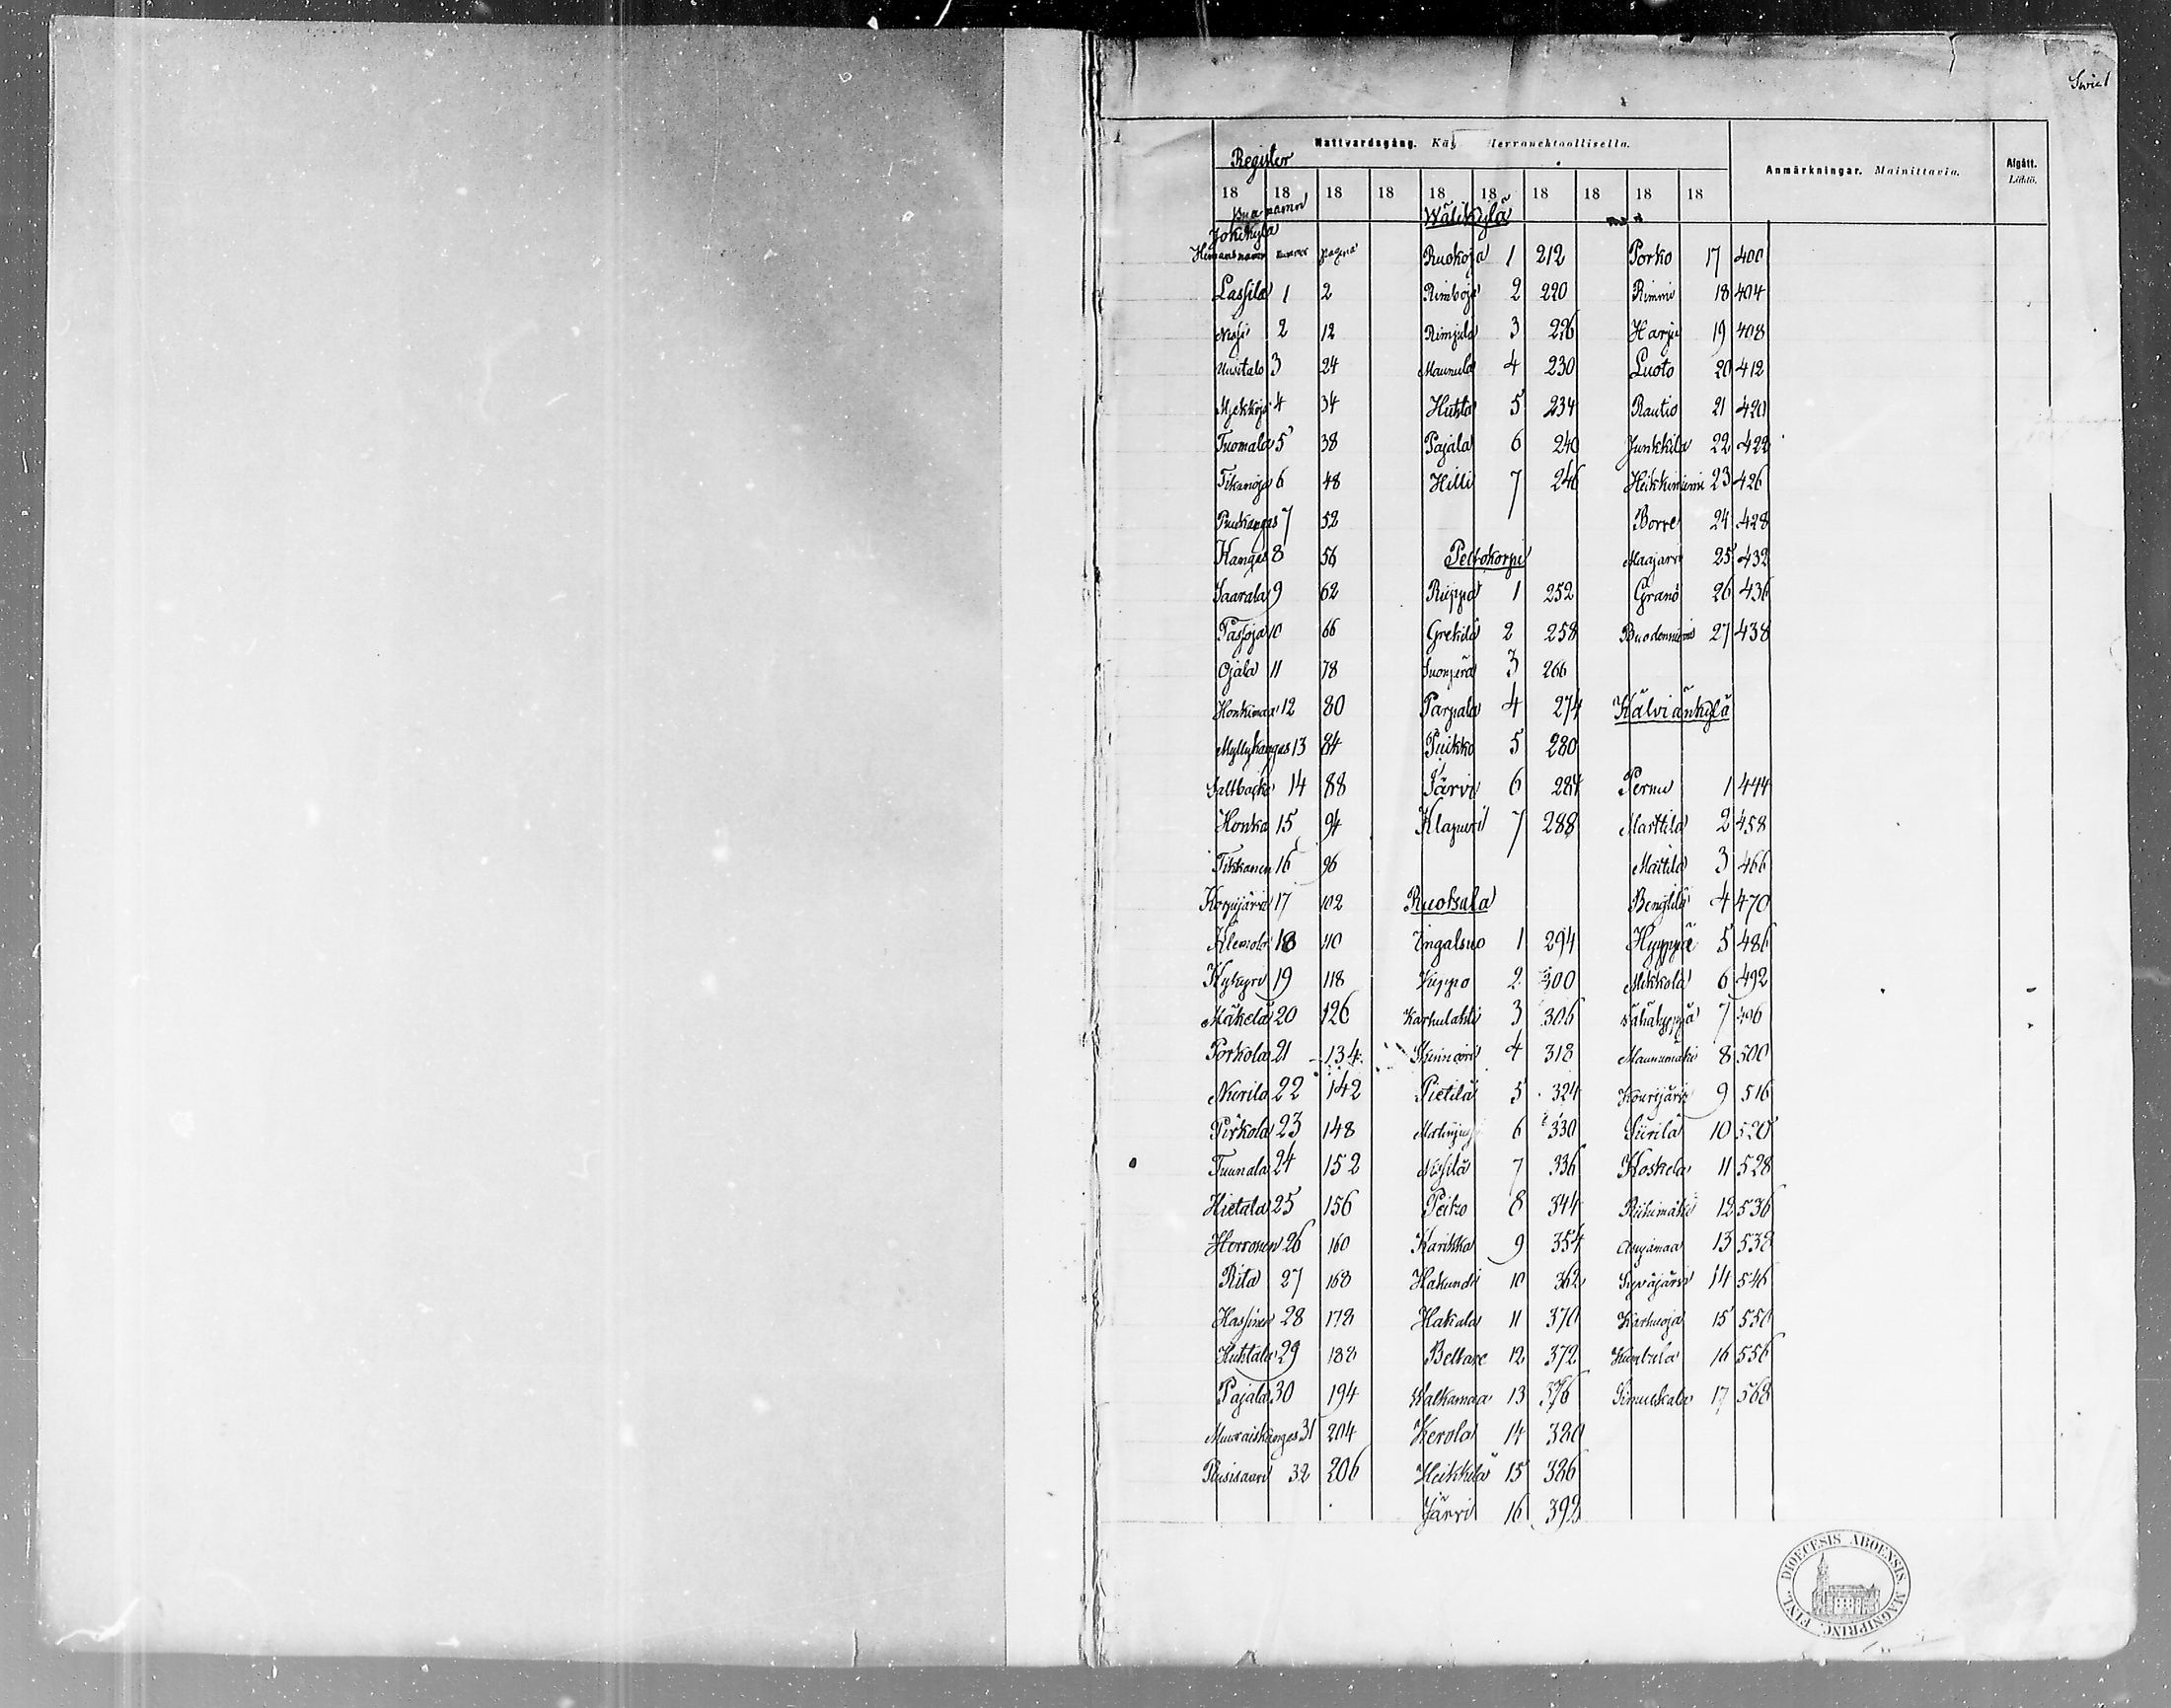 Swie1
1
Nattvardsgång. Käy Herranehtoollisella.
Anmärkningar. Mainittavia.
Afgått. Lähtö.
Register
18 18 18 18 18 18 18 18 18 18
Byanamn
Jokikylä
Hemansnamn Nummer pagina
Lassila 1 2
Nissi 2 12
Uusitalo 3 24
Myckoja 4 34
Tuomala 5 38
Tikanoja 6 48
Puukangas 7 52
Kangas 8 56
Saarala 9 62
Passoja 10 66
Ojala 11 78
Honkimaa 12 80
Myllykangas 13 84
Saltbacka 14 88
Honka 15 94
Tikkanen 16 96
Korpijärvi 17 102
Klemola 18 110
Kykyri 19 118
Mäkelä 20 126
Porkola 21 134
Niurila 22 142
Pirkola 23 148
Tuunala 24 152
Hietala 25 156
Herronen 26 160
Rita 27 168
Hassinen 28 178
Huhtala 29 188
Pajala 30 194
Muuraiskangas 31 204
Ruisisaari 32 206
Wälikylä
Ruokoja 1 212
Rimboja 2 220
Rimpilä 3 226
Maunula 4 230
Huhta 5 234
Pajala 6 240
Hilli 7 246
Peltokorpi
Riippa 1 252
Grekilä 2 258
Suonperä 3 266
Parpala 4 274
Puikko 5 280
Järvi 6 284
Klapuri 7 288
Ruotsala
Ingalsuo 1 294
Kippo 2 300
Karhulahti 3 306
Skinnari 4 318
Pietilä 5 324
6 330
Nissilä 7 336
Peitso 8 344
Karhka 9 354
Hakundi 10 362
Hakala 11 370
Beltare 12 372
Walkamaa 13 376
Kerola 14 380
Heikkilä 15 386
Järvi 16 392
Porko 17 400
Rimmi 18 404
Harju 19 408
Luoto 20 412
Rautio 21 420
Junkkila 22 422
Heikkiniemi 23 426
Borre 24 428
Maajärvi 25 432
Granö 26 436
Buodenniemi 27 438
Kälviänkylä
Pernu 1 444
Marttila 2 458
Mattila 3 466
Bengtila 4 470
Hyyppä 5 486
Mikkola 6 492
Vähähyyppä 7 496
Maunumäki 8 500
Kourijärvi 9 516
Siirilä 10 520
Koskela 11 528
Riihimäki 12 536
13 538
Syväjärvi 14 546
Karhuoja 15 550
Humbrla 16 556
17 568
DIOECESIS ABOENSIS MAGNI PRINC. FINL.